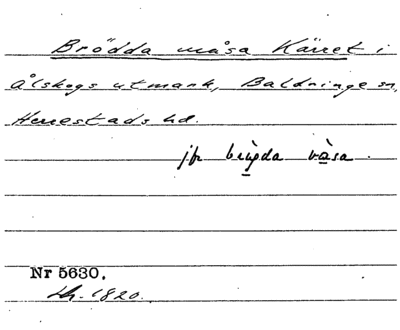 Brödda måsa Kärret i
Ålskogs utmark, Baldringe sn,
Herrestads hd.
jfr bruda våsa.
Nr 5630.
Lh. 1820.